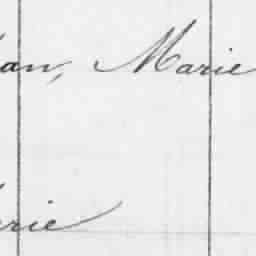 an, Marie
rie